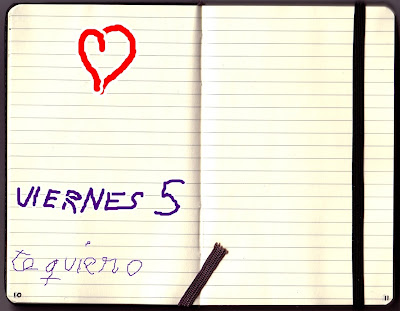 VIERNES 5
te quiero
10
11